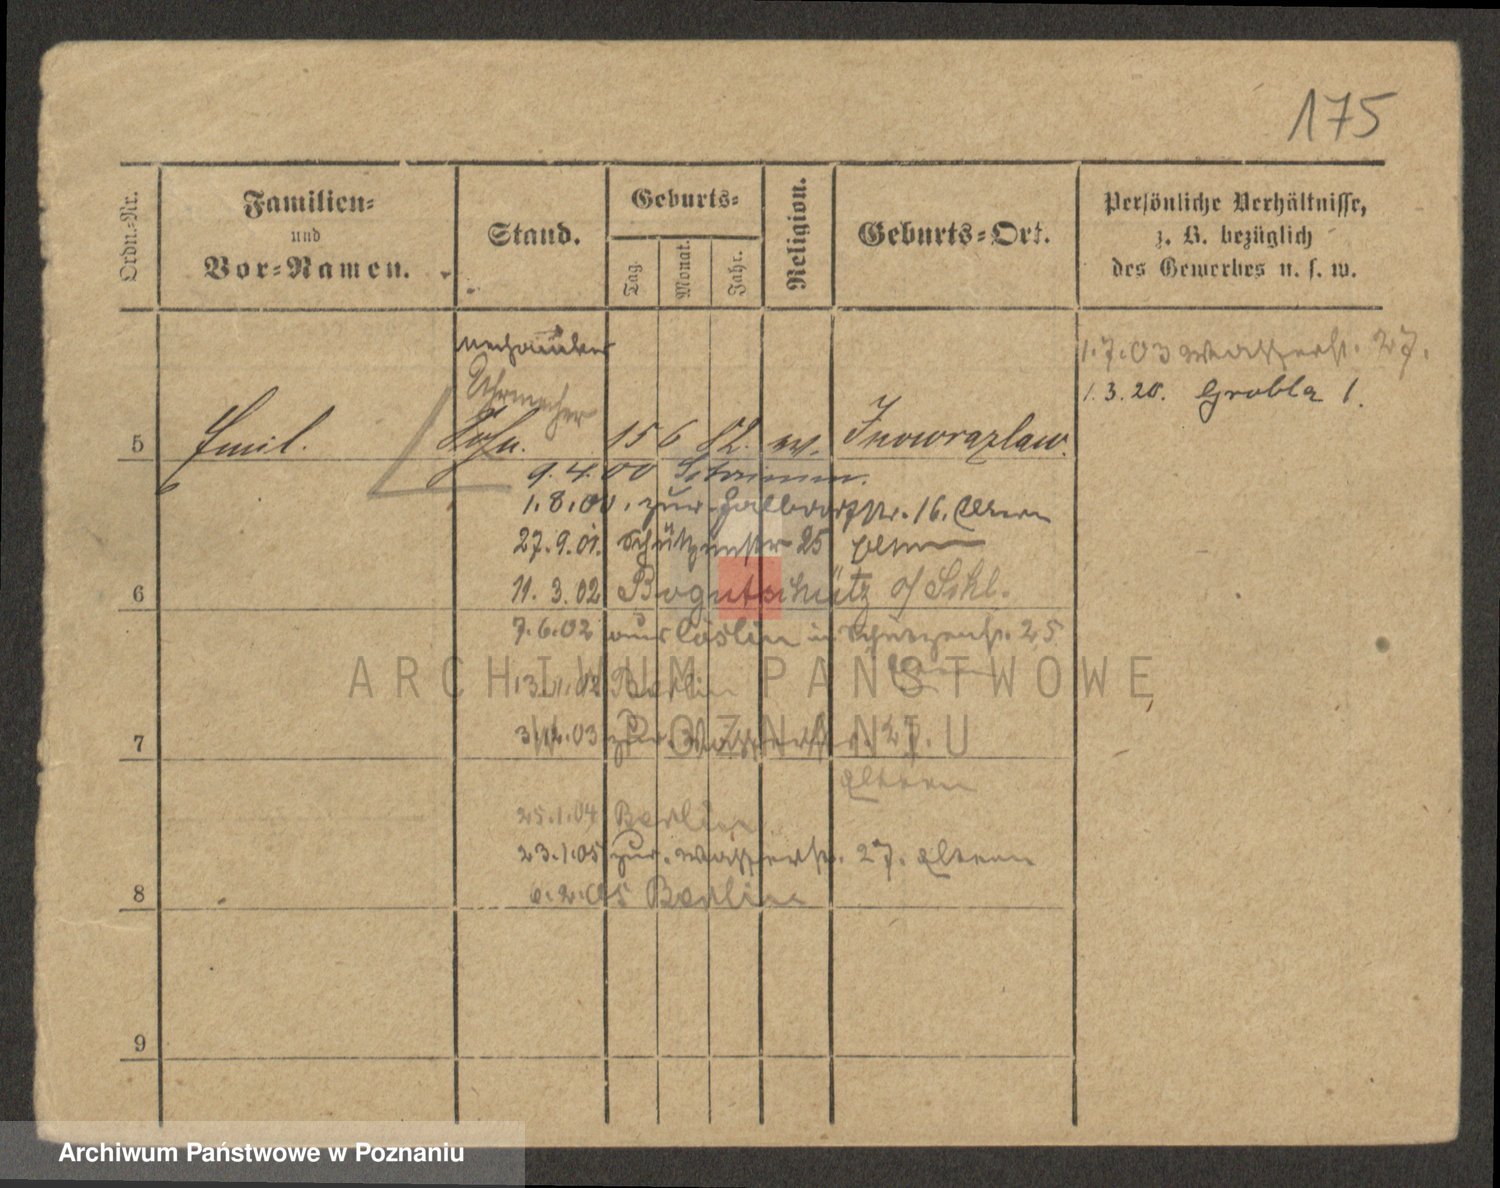 175
Ordn.-Nr.
Familien-
und
Vor-Namen.
Stand.
Geburts-
Tag.
Monat.
Jahr.
Religion.
Geburts-Ort.
Persönliche Verhältnisse,
z. B. bezüglich
des Gewerbes u. s. w.
1.7.03 Wasserstr. 27.
Uhrmacher
1.3.20. Grobla 1.
5 Emil. Sohn. 15 6 82. Inowrazlaw.
9.4.00 Schrimm.
1.8.00. zur. Halbdorfstr. 16. Eltern
27.9.01. Schützenstr 25 Eltern
6 11.3.02 Bogutschütz o/Schl.
7.6.02 aus Cöslin in Schützenstr. 25
Eltern
Berlin
ARCHIWUM PAŃSTWOWE
W POZNANIU
7 03 zur. Wasserstr. 27.
Eltern
25.1.04 Berlin
23.1.05 zur. Wasserstr. 27. Eltern
8 6.2.05 Berlin
9
Archiwum Państwowe w Poznaniu